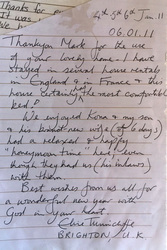 Thanks for
It was
We h
4th 5th 6th Jan. 11
06.01.11
Thankyou Mark for the use
of your lovely home. I have
stayed in several house rentals
in England & in France & this
house certainly has the most comfortable
bed!
We enjoyed Kona & my son
& his bride! new wife (of 6 days)
had a relaxed & happy
"honeymoon time" and even
tho' they had us (his inlaws)
with them.
Best wishes from us all for
a wonderful new year with
God in your heart.
Elvie
BRIGHTON U.K.